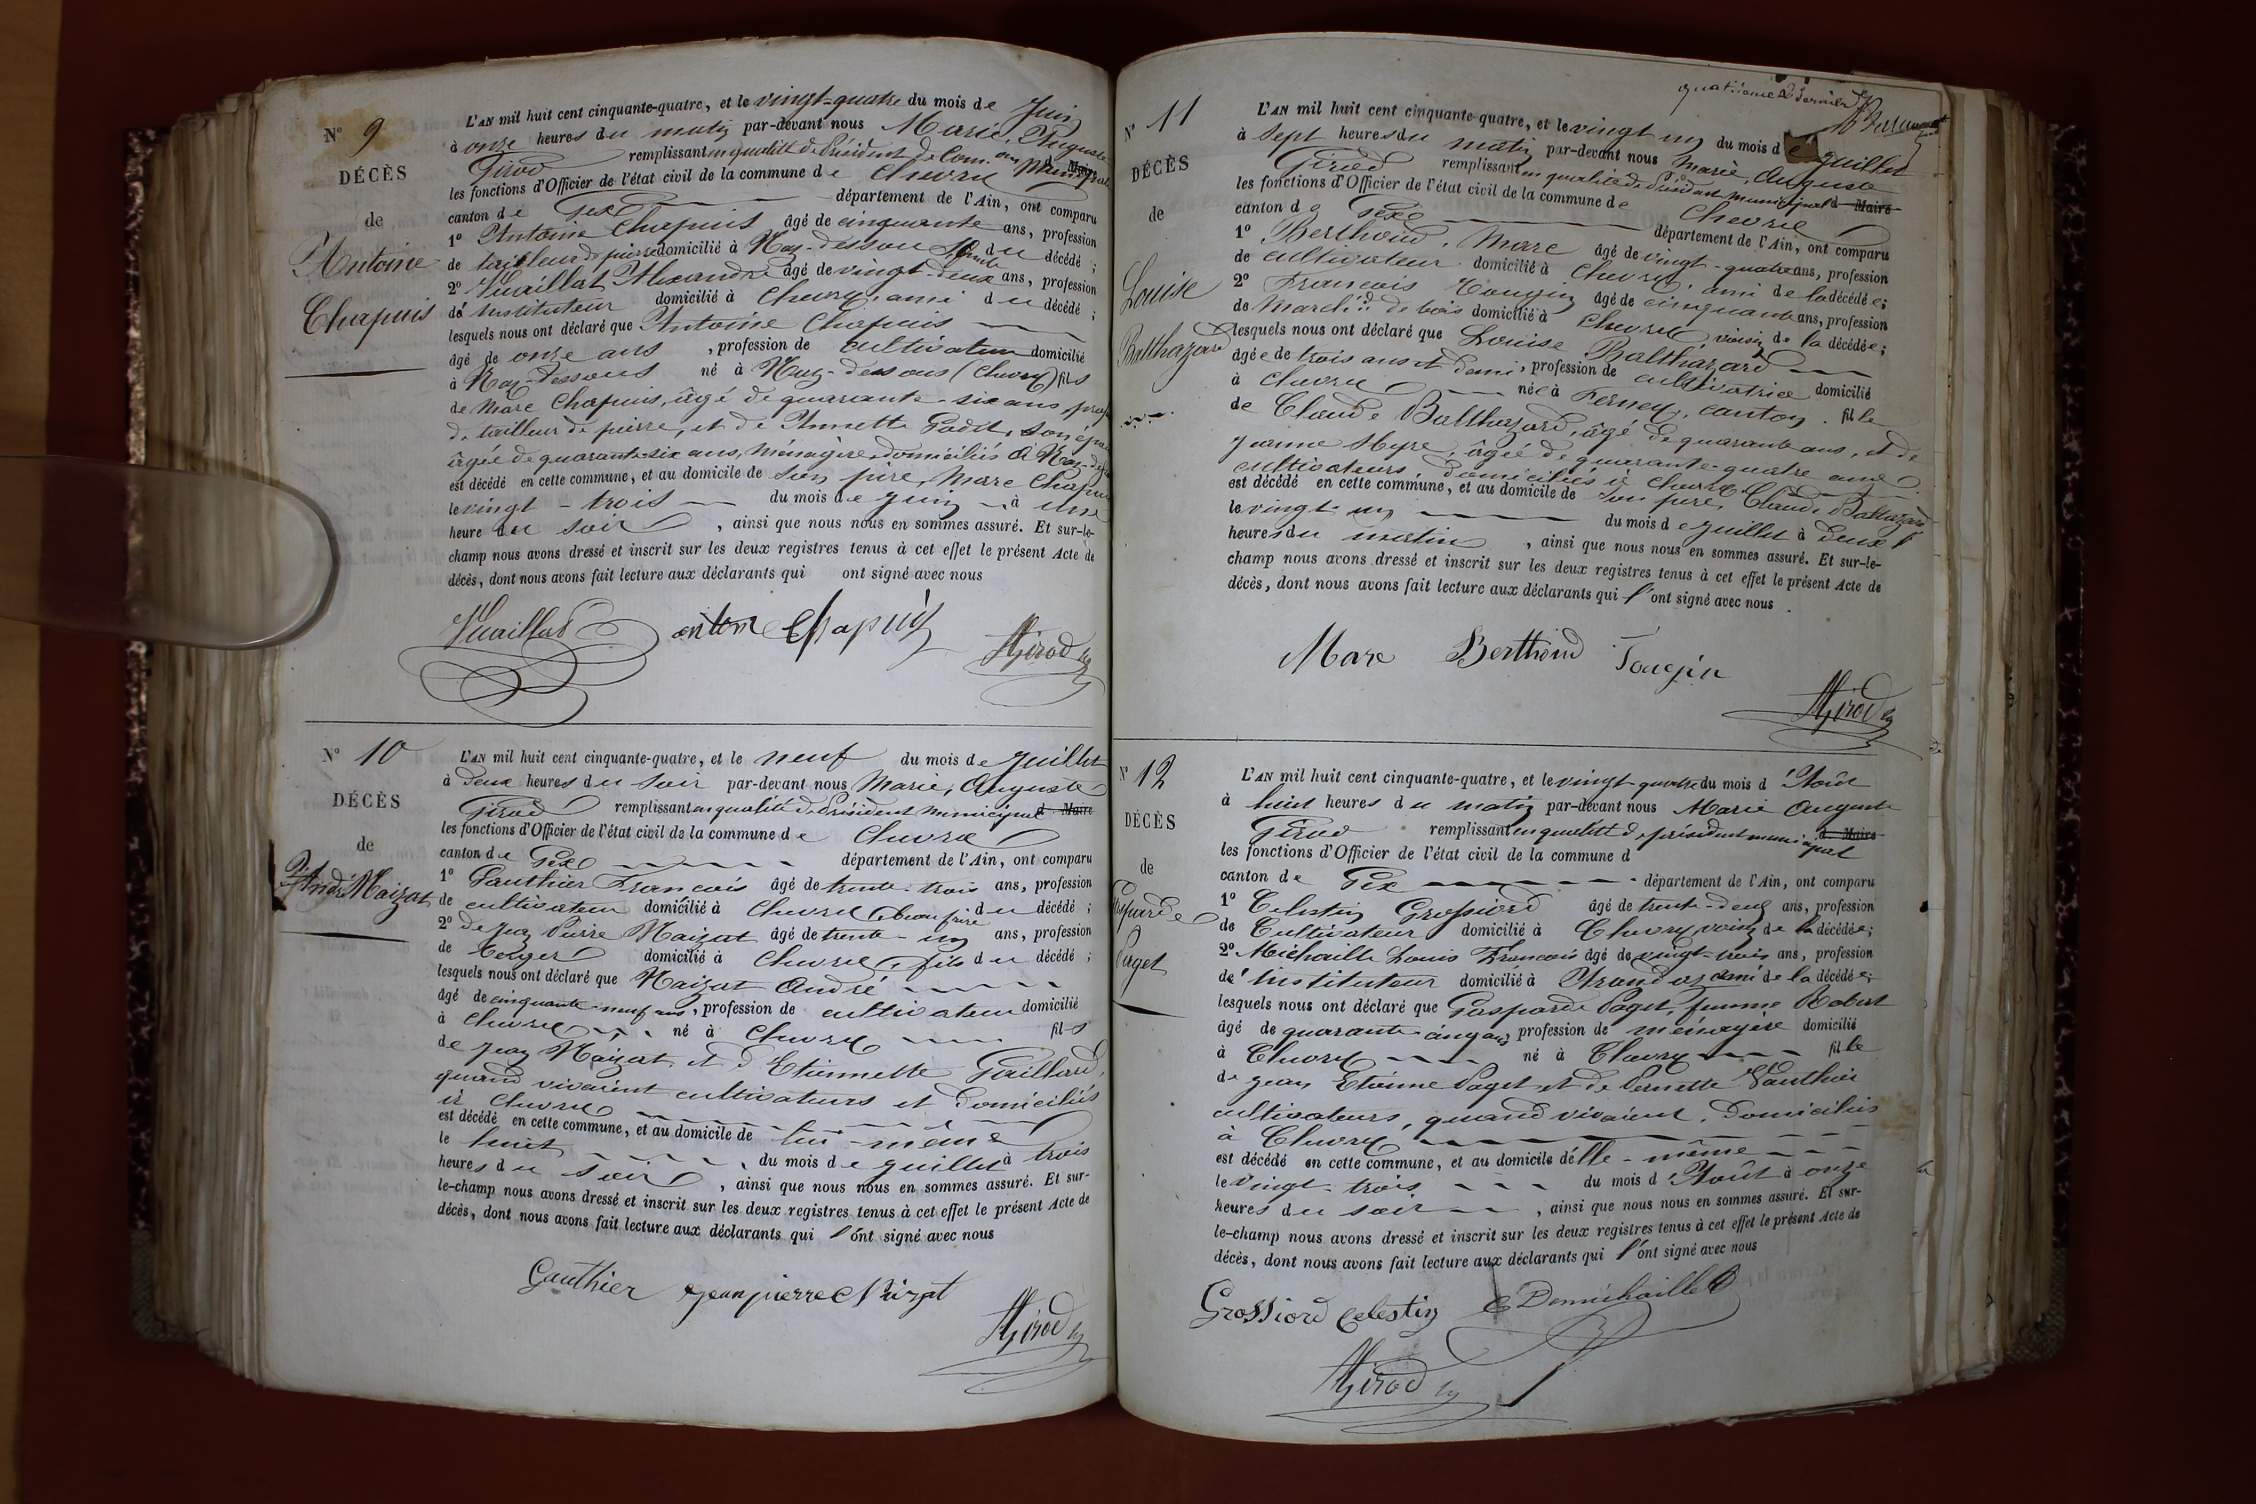 N° 9
DÉCÈS
de
Antoine
Chapuis
L'AN mil huit cent cinquante-quatre, et le vingt-quatre du mois de Juin
à onze heures du matin par-devant nous Marie, Auguste
Girod remplissant en qualité de Président de Com. on Municipale d Maire
les fonctions d'Officier de l'état civil de la commune de Chevry
canton de Gex département de l'Ain, ont comparu
1° Antoine Chapuis âgé de cinquante ans, profession
de tailleur de pierre domicilié à Naz-dessous, du décédé ;
2° Vuaillat Alexandre âgé de vingt-deux ans, profession
d' instituteur domicilié à Chevry, ami du décédé ;
lesquels nous ont déclaré que Antoine Chapuis
âgé de onze ans , profession de cultivateur domicilié
à Naz-Dessous né à Naz-dessous (Chevry) fils
de Marc Chapuis, âgé de quarante-six ans, prof
de tailleur de pierre, et de Annette Godet, son
âgée de quarante-six ans, ménagère domiciliés à Naz-
est décédé en cette commune, et au domicile de son père, Marc Chapuis
le vingt-trois du mois de juin à une
heure du soir , ainsi que nous nous en sommes assuré. Et sur-le-
champ nous avons dressé et inscrit sur les deux registres tenus à cet effet le présent Acte de
décès, dont nous avons fait lecture aux déclarants qui ont signé avec nous
Vuaillat Chapuis AGirod
N° 10
DÉCÈS
de
André Naizat
L'AN mil huit cent cinquante-quatre, et le neuf du mois de Juillet
à deux heures du soir par-devant nous Marie, Auguste
Girod remplissant en qualité de Président Municipal d Maire
les fonctions d'Officier de l'état civil de la commune de Chevry
canton de Gex département de l'Ain, ont comparu
1° Gauthier François âgé de trente-trois ans, profession
de cultivateur domicilié à Chevry, beau frère du décédé ;
2° Jean Pierre Naizat âgé de trente-un ans, profession
de berger domicilié à Chevry, fils du décédé ;
lesquels nous ont déclaré que Naizat André
âgé de cinquante-neuf ans, profession de cultivateur domicilié
à Chevry né à Chevry fils
de Jean Naizat et d'Etiennette Gaillard,
quand vivaient cultivateurs et domiciliés
à Chevry
est décédé en cette commune, et au domicile de lui-même
le huit du mois de juillet à trois
heures du soir , ainsi que nous nous en sommes assuré. Et sur-
le-champ nous avons dressé et inscrit sur les deux registres tenus à cet effet le présent Acte de
décès, dont nous avons fait lecture aux déclarants qui l'ont signé avec nous
Gauthier jean pierre Naizat
AGirod
quatrième & dernier
N° 11
DÉCÈS
de
Louise
Balthazard
L'AN mil huit cent cinquante-quatre, et le vingt un du mois de Juillet
à sept heures du matin par-devant nous Marie, Auguste
Girod remplissant en qualité de Président municipal d Maire
les fonctions d'Officier de l'état civil de la commune de Chevry
canton de Gex département de l'Ain, ont comparu
1° Berthoud, Marc âgé de vingt-quatre ans, profession
de cultivateur domicilié à Chevry, ami de la décédée ;
2° François Tougin âgé de cinquante ans, profession
de March.d de bois domicilié à Chevry, voisin de la décédée ;
lesquels nous ont déclaré que Louise Balthazard
âgée de trois ans et demi, profession de cultivatrice domicilié
à Chevry née à Ferney, canton. fille
de Claude Balthazard, âgé de quarante ans, et de
Jeanne Myre, âgée de quarante-quatre ans,
cultivateurs, domiciliés à Chevry
est décédé en cette commune, et au domicile de son père, Claude Baltazard
le vingt-un du mois de juillet à deux
heures du matin , ainsi que nous nous en sommes assuré. Et sur-le-
champ nous avons dressé et inscrit sur les deux registres tenus à cet effet le présent Acte de
décès, dont nous avons fait lecture aux déclarants qui l'ont signé avec nous .
Marc Berthoud Tougin
AGirod
N° 12
DÉCÈS
de
Gasparde
Paget
L'AN mil huit cent cinquante-quatre, et le vingt-quatre du mois d'Août
à huit heures du matin par-devant nous Marie Auguste
Girod remplissant en qualité de président municipal d Maire
les fonctions d'Officier de l'état civil de la commune d
canton de Gex département de l'Ain, ont comparu
1° Celestin Grossiord âgé de trente-deux ans, profession
de Cultivateur domicilié à Chevry, voisin de la décédée ;
2° Michaille Louis François âgé de vingt-trois ans, profession
d' instituteur domicilié à ami de la décédée ;
lesquels nous ont déclaré que Gasparde Paget, femme Robert
âgé de quarante-cinq ans, profession de ménagère domicilié
à Chevry né à Chevry fille
de Jean Etienne Paget et de Pernette Gauthier
cultivateurs, quand vivaient, domiciliés
à Chevry
est décédé en cette commune, et au domicile d'elle-même
le vingt-trois du mois d'Août à onze
heures du soir , ainsi que nous nous en sommes assuré. Et sur-
le-champ nous avons dressé et inscrit sur les deux registres tenus à cet effet le présent Acte de
décès, dont nous avons fait lecture aux déclarants qui l'ont signé avec nous
Grossiord Celestin Demichaille
AGirod